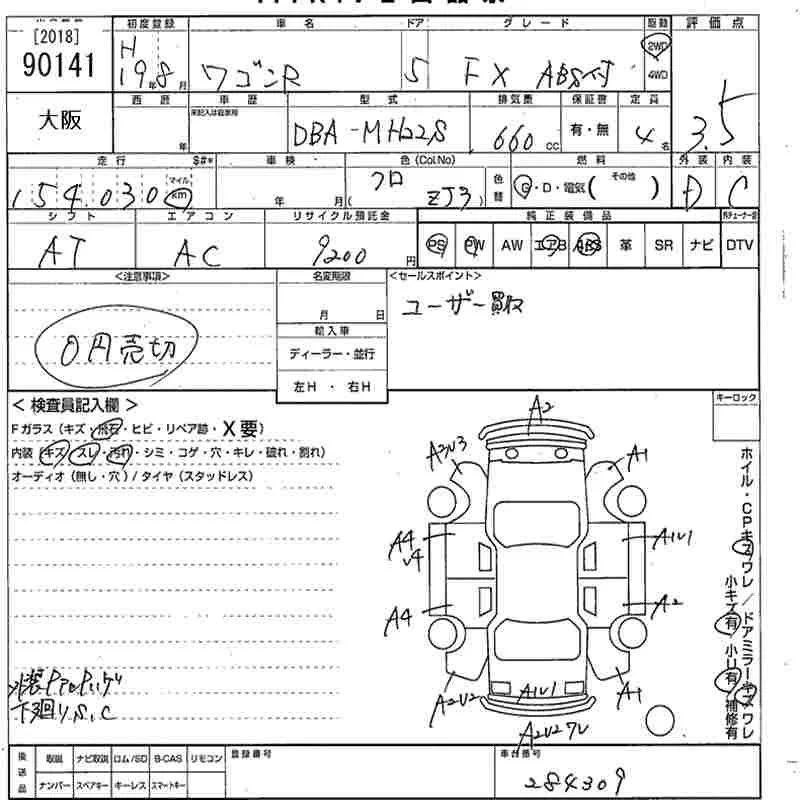 [2018] 初度登録 車名 ドア グレード 駆動 評価点
90141 H 19年8月 ワゴンR 5 FX ABS付 2WD 4WD 3.5
大阪 西暦 車歴 型式 排気量 保証書 定員
年 DBA-MH22S 660cc 有・無 4名
走行 車検 色(Col No) 燃料 外装 内装
154,030 マイル km 年 月 クロ ( ZJ3 ) 色替 G・D・電気( その他 ) D C
シフト エアコン リサイクル預託金 純正装備品
AT AC 9200円 PS PW AW エアB ABS 革 SR ナビ DTV
<注意事項> 名変期限 <セールスポイント>
月 日 ユーザー買取
0円売切 輸入車
ディーラー・並行
左H ・ 右H
<検査員記入欄> キーロック
Fガラス(キズ・飛石・ヒビ・リペア跡・X要)
内装(キズ・スレ・汚れ・シミ・コゲ・穴・キレ・破れ・割れ)
オーディオ(無し・穴)/タイヤ(スタッドレス)
A2
A2U3 A1
A4 U4 A1U1
A4 A2
A2U2 A1U1 A1
A2U2
ホイル・CPキズワレ/ドアミラーキズワレ
小キズ有 小U有 補修有
下廻りS,C
搬送品 取説 ナビ取説 ロム/SD B-CAS リモコン 登録番号 車台番号
ナンバー スペアキー キーレス スマートキー 284309